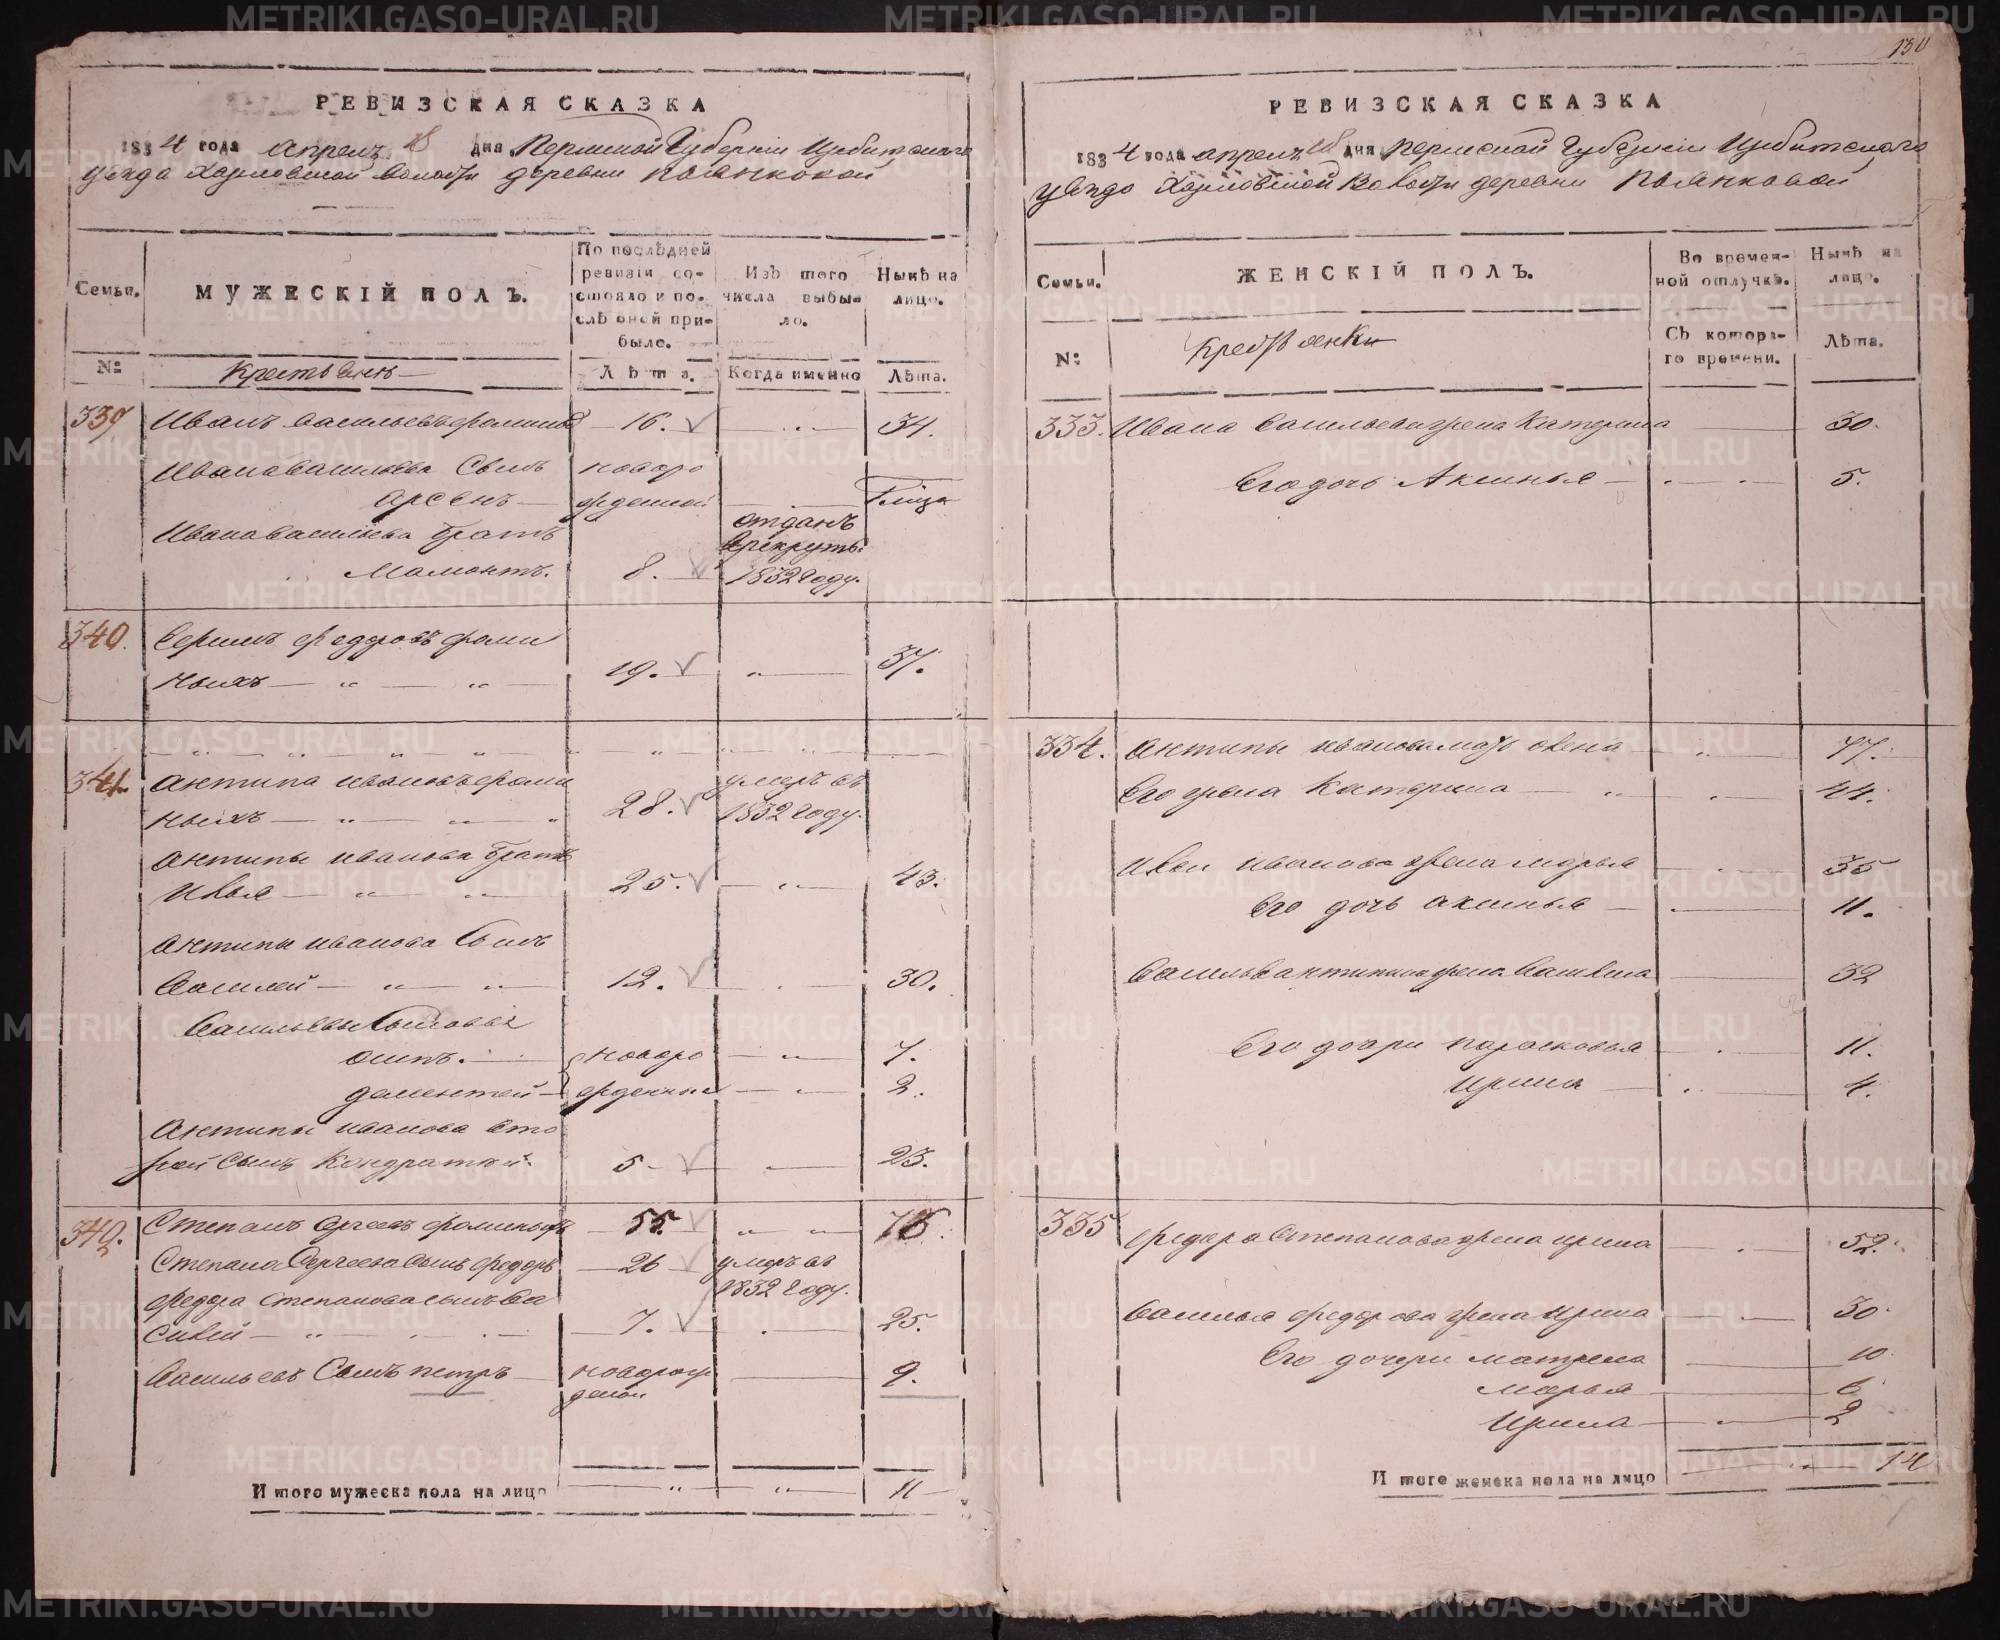 130
РЕВИЗСКАЯ СКАЗКА
1834 года апреля 18 дня Пермской Губернии Ирбитского
уѣзда Харловской волости деревни Пьянковой
Семьи.
МУЖЕСКІЙ ПОЛЪ.
По послѣдней
ревизіи со-
стояло и по-
слѣ оной при-
было.
Изъ того
числа выбы-
ло.
Нынѣ на
лицо.
№
Крестьяне
Лѣта.
Когда именно
Лѣта.
339 Иванъ Васильевъ Фоминыхъ 16. 34.
Ивана Васильева Сынъ новоро
Арсенъ жденной 1 1/2 года
Ивана Васильева братъ отданъ
Мамонтъ. 8. в рекруты
1832 году.
340. Ефимъ Федоровъ Фоми
ныхъ 19. 37.
341. Антипа Ивановъ Фоми умеръ въ
ныхъ 28. 1832 году.
Антипы Иванова братъ
Илья 25. 43.
Антипы Иванова Сынъ
Василей 12. 30.
Васильевы Сыновья
Осипъ. новоро 7.
Дементей жденные 2.
Антипы Иванова вто
рой Сынъ Кондратей. 5 23.
342. Степанъ Сергеевъ Фоминыхъ 55. 73.
Степана Сергеева Сынъ Федоръ 26 умеръ въ
1832 году.
Федора Степанова сынъ Ва
силей 7. 25.
Васильевъ Сынъ Петръ новорож 9.
деной
И того мужеска пола на лицо 11
РЕВИЗСКАЯ СКАЗКА
1834 года апреля 18 дня Пермской Губерніи Ирбитского
уѣзда Харловской Волости деревни Пьянковой
Семьи.
ЖЕНСКІЙ ПОЛЪ.
Во времен-
ной отлучкѣ.
Нынѣ на
лицо.
№
Крестьянки
Съ котора-
го времени.
Лѣта.
333. Ивана Васильева жена Катерина 30.
Его дочь Аксинья 5.
334. Антипы Иванова мать Елена 77.
Его жена Катерина 44.
Ильи Иванова жена Марья 35
Его дочь Аксинья 11.
Василья Антипина жена 32
Его дочери Парасковья 11.
Ирина 4.
335 Федора Степанова жена Ирина 52.
Василья Федорова жена Ирина 30.
Его дочери Матрена 10.
Марья 6
Ирина 2
И того женска пола на лицо 14
METRIKI.GASO-URAL.RU